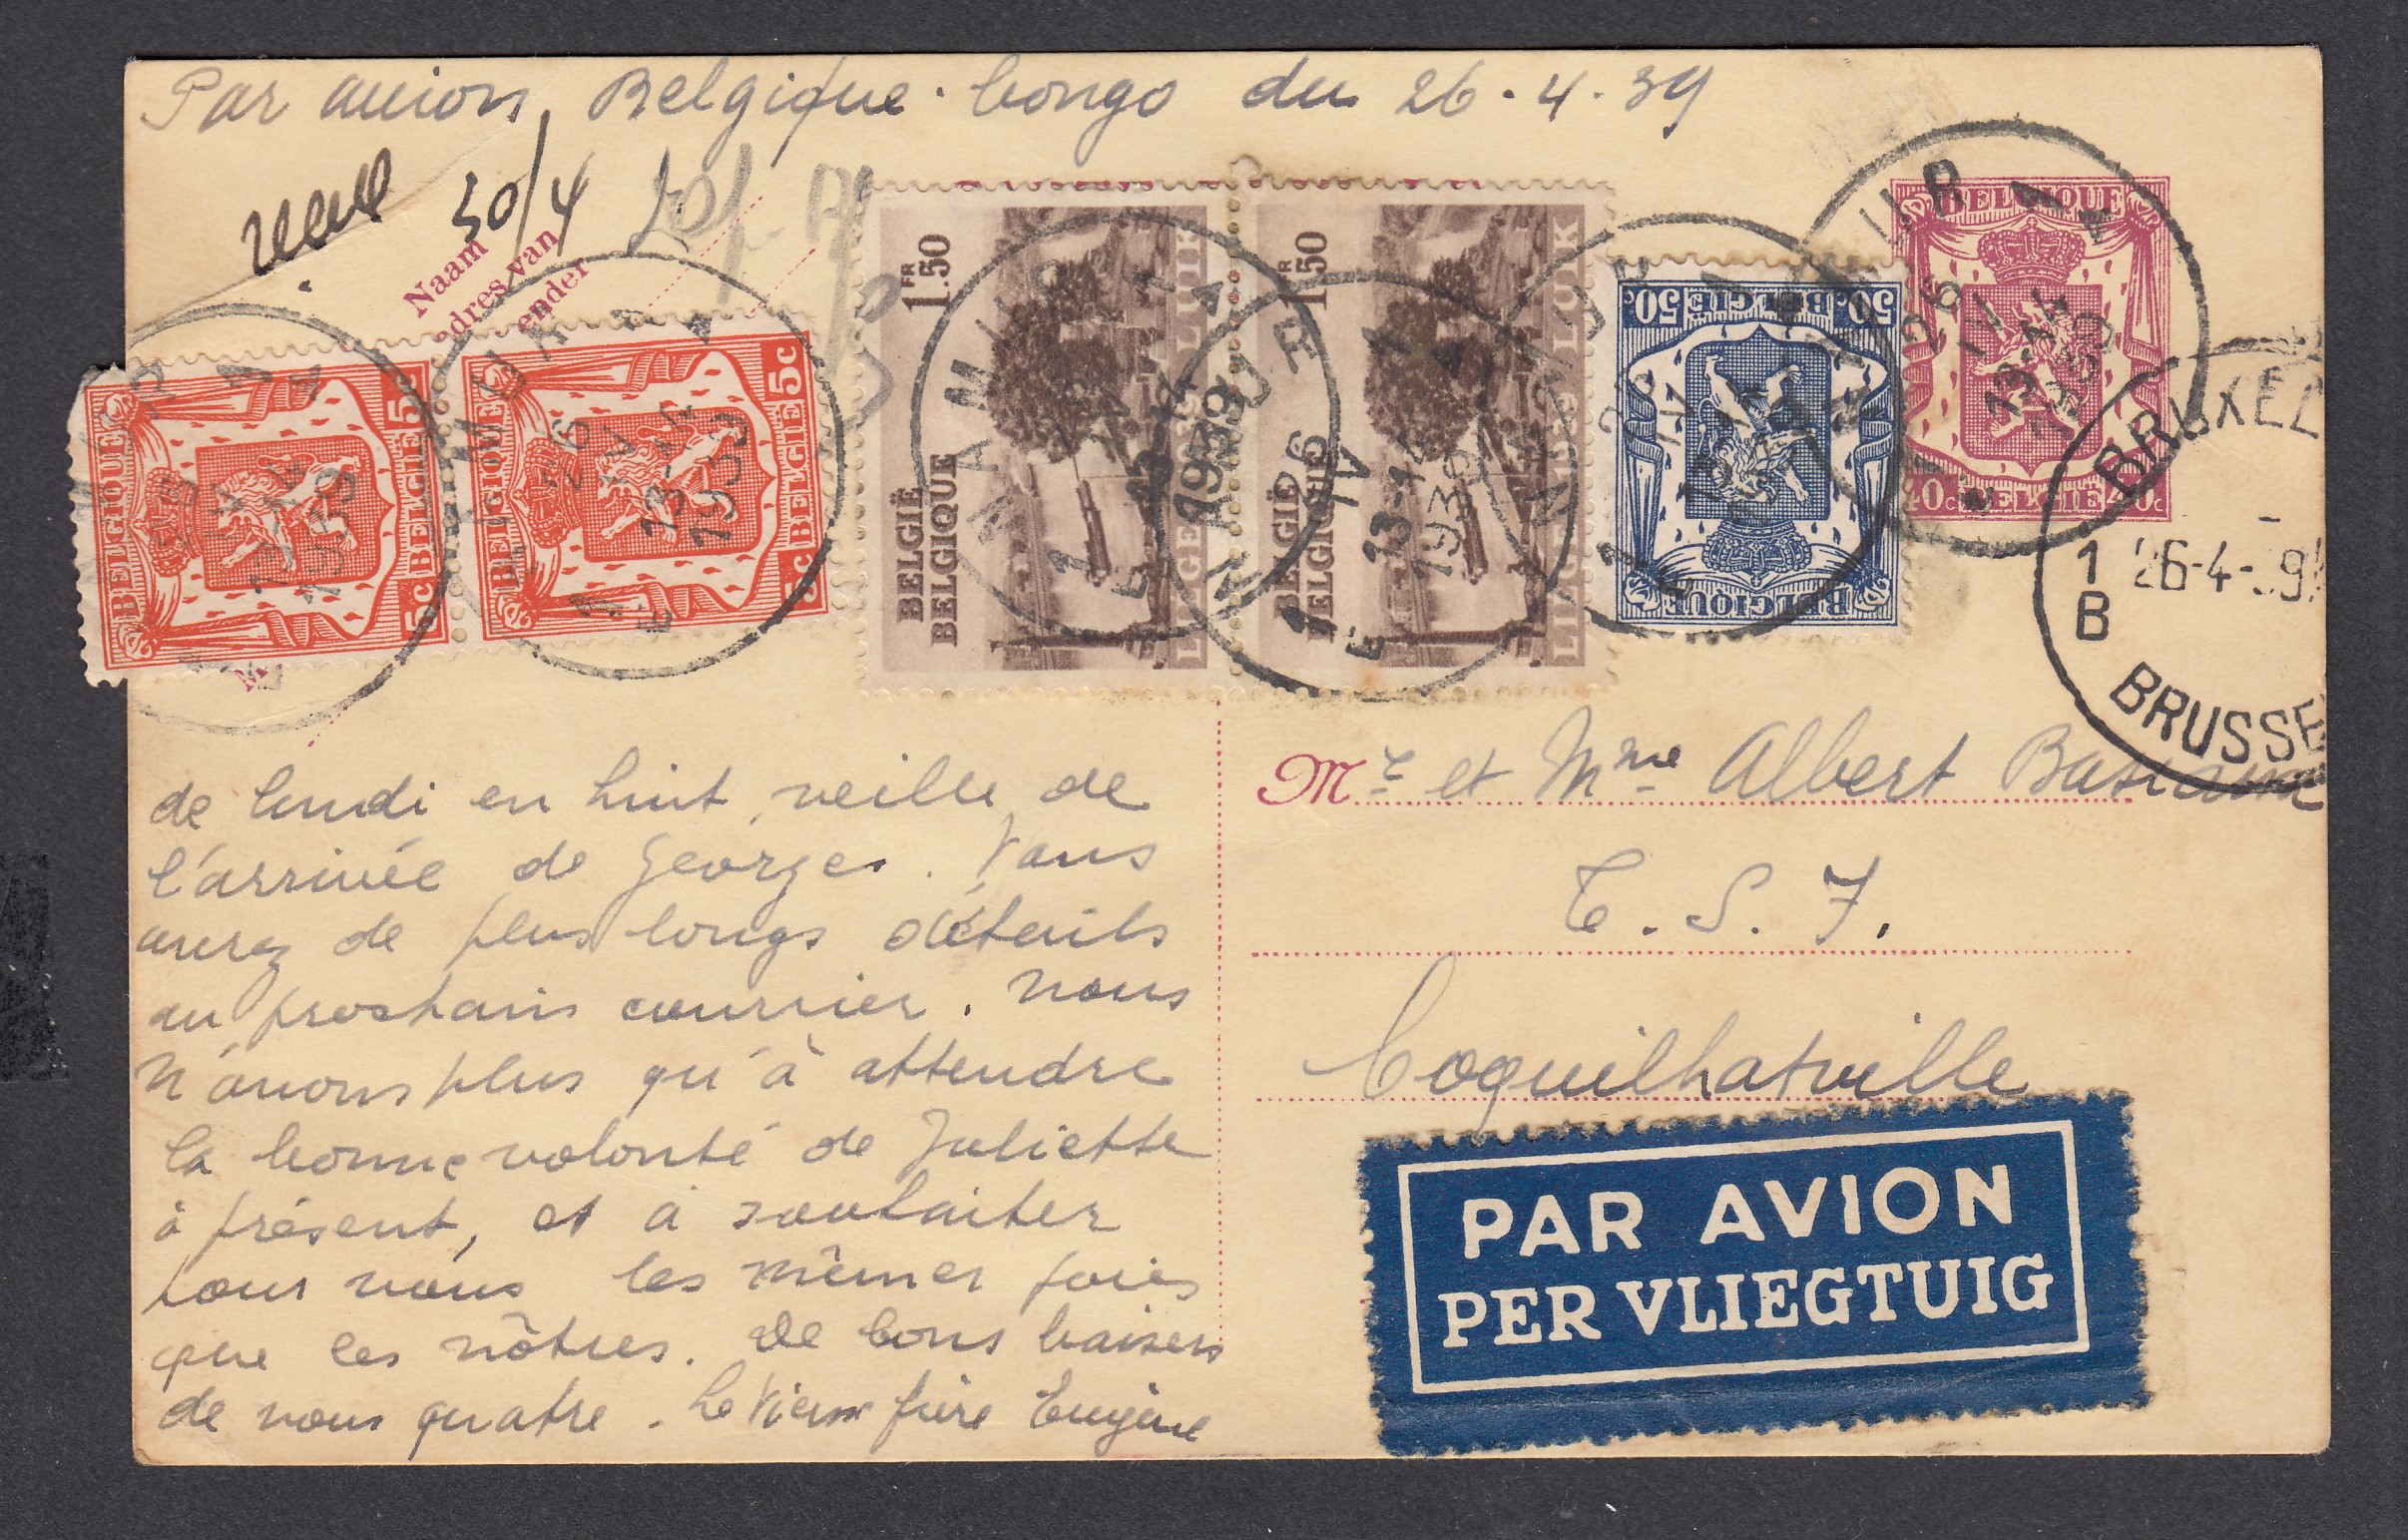 Par avion Belgique-Congo du 26-4-39
30/4
Naam
adres van
ender
BELGIQUE 5c
5c BELGIË
BELGIQUE 5c
5c BELGIË
1 FR 50
BELGIË
BELGIQUE
LIÉGE 1939 LUIK
1 FR 50
BELGIË
BELGIQUE
LIÉGE 1939 LUIK
50c BELGIË 50c
BELGIQUE
BELGIQUE
40c BELGIË 40c
NAMUR
26
IV
13-14
1939
BRUXEL
1 26-4-39
B
BRUSSE
de lundi en huit, veille de
l'arrivée de Georges. Vous
aurez de plus longs détails
au prochain courrier. Nous
n'avons plus qu'à attendre
la bonne volonté de Juliette
à présent, et à souhaiter
pour vous les mêmes joies
que les nôtres. De bons baisers
de nous quatre. Le Vieux frère Eugène
Mr et Mme Albert
T. S. F.
Coquilhatville
PAR AVION
PER VLIEGTUIG